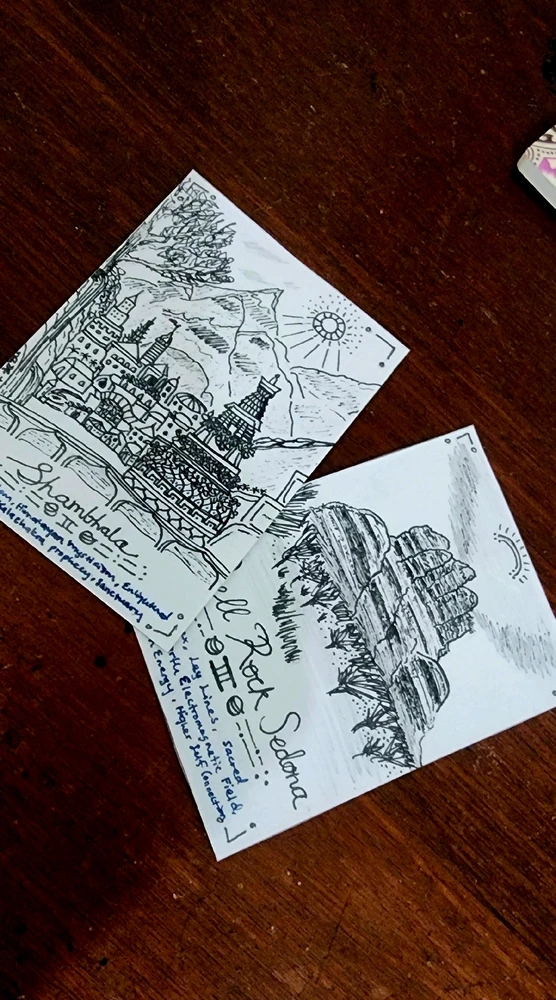 Shambhala
Himalayan Mysticism, Enlightened
Kalachakra prophecy, Sanctuary
ell Rock Sedona
Ley Lines, Sacred
Electromagnetic Field,
Energy, Higher Self Connection